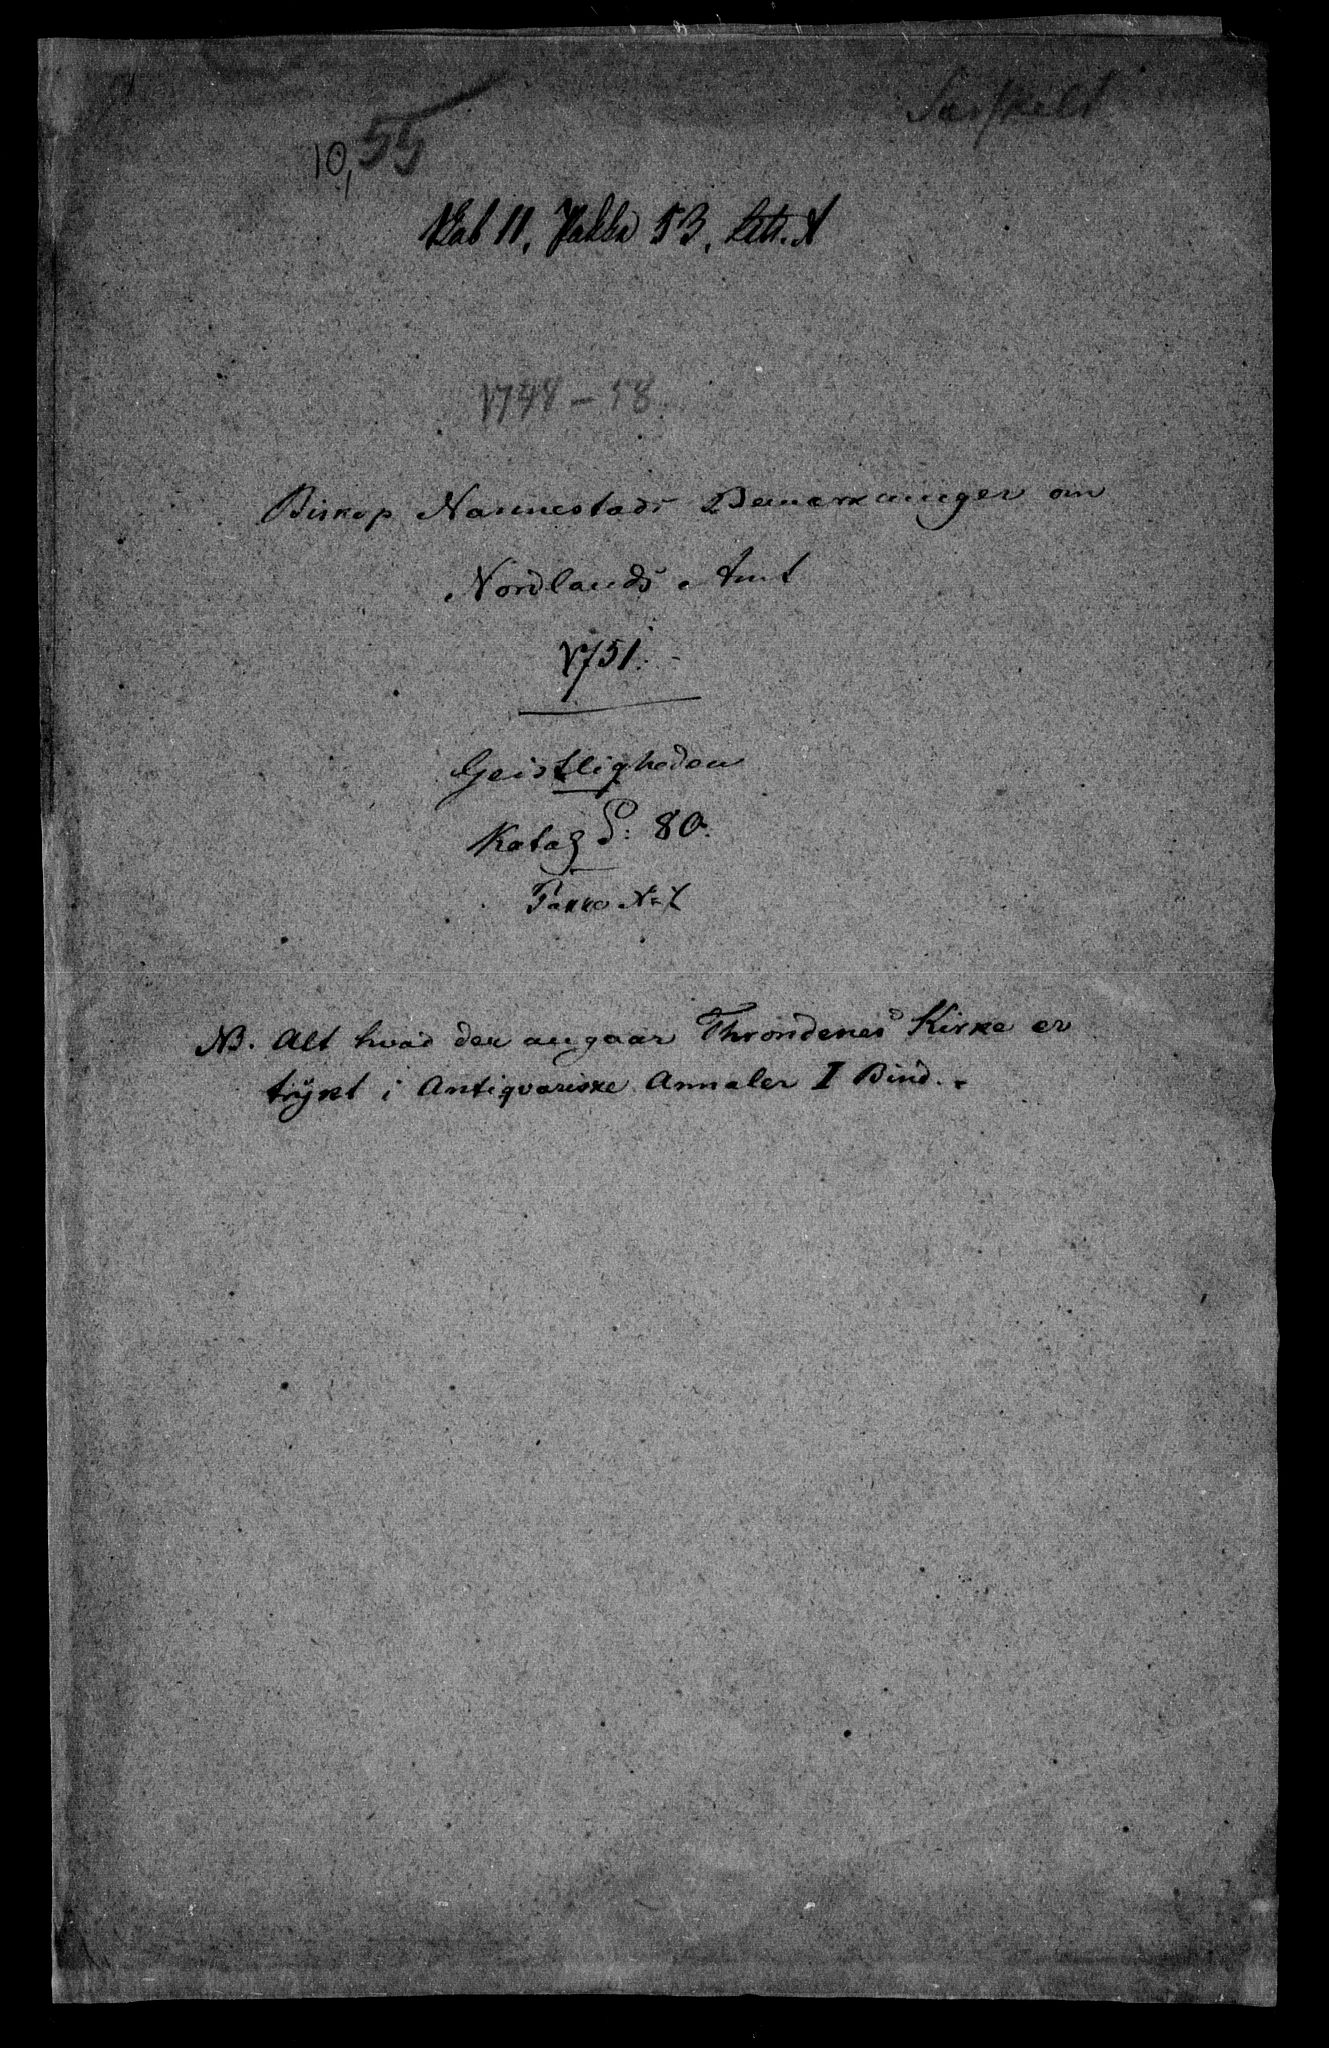 Særskilt
10, 55
Skab 11, Pakke 53, Litr. A
1748-58.
Biskop Nannestads Bemærkninger om
Nordlands Amt
1751.
Geistligheden
Katag P: 80.
Pakke
NB. Alt hvad der angaar Throndenes Kirke er
trykt i Antiqvariske Annaler I Bind.